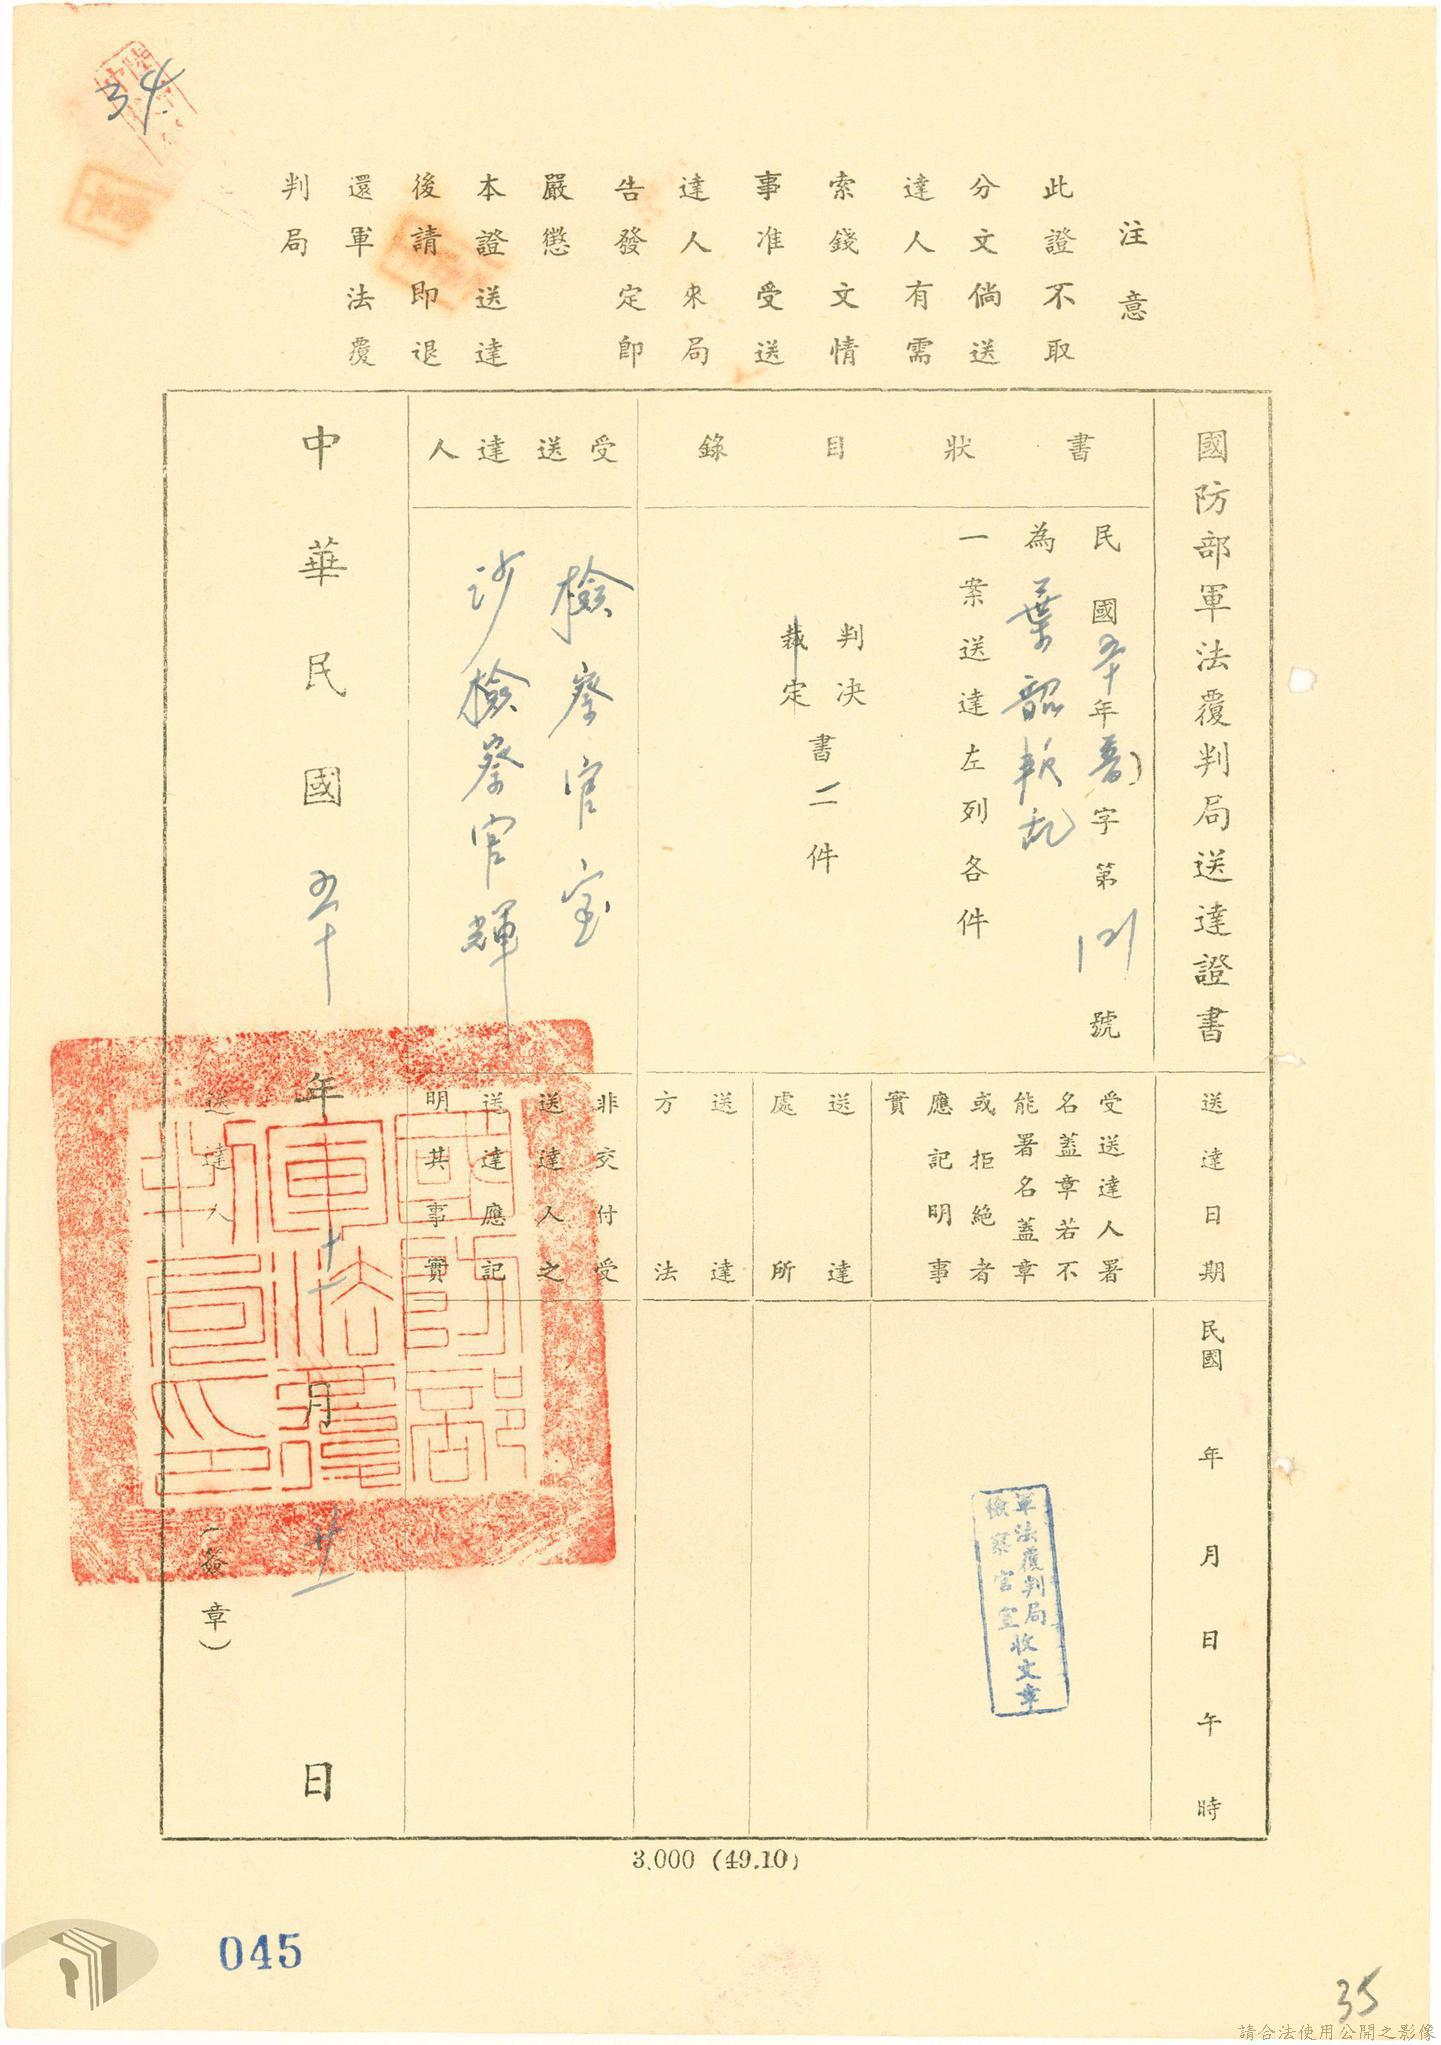 34
注意
此證不取
分文倘送
達人有需
索錢文情
事准受送
達人來局
告發定即
嚴懲
本證送達
後請即退
還軍法覆
判局
國防部軍法覆判局送達證書
書狀目錄
民國五十年普字第121號
為葉韶叛乱
一案送達左列各件
判決
裁定
書二件
受送達人
檢察官室
沙檢察官輝
送達日期
民國 年 月 日 午 時
受送達人署
名蓋章若不
能署名蓋章
或拒絕者
應記明事
實
軍法覆判局
檢察官室收文章
送達
處所
送達
方法
非交付受
送達人之
送達應記
明其事實
中華民國五十年十一月廿一日
送達人
(簽章)
國防部
軍法覆
判局印
3.000 (49.10)
045
35
請合法使用公開之影像